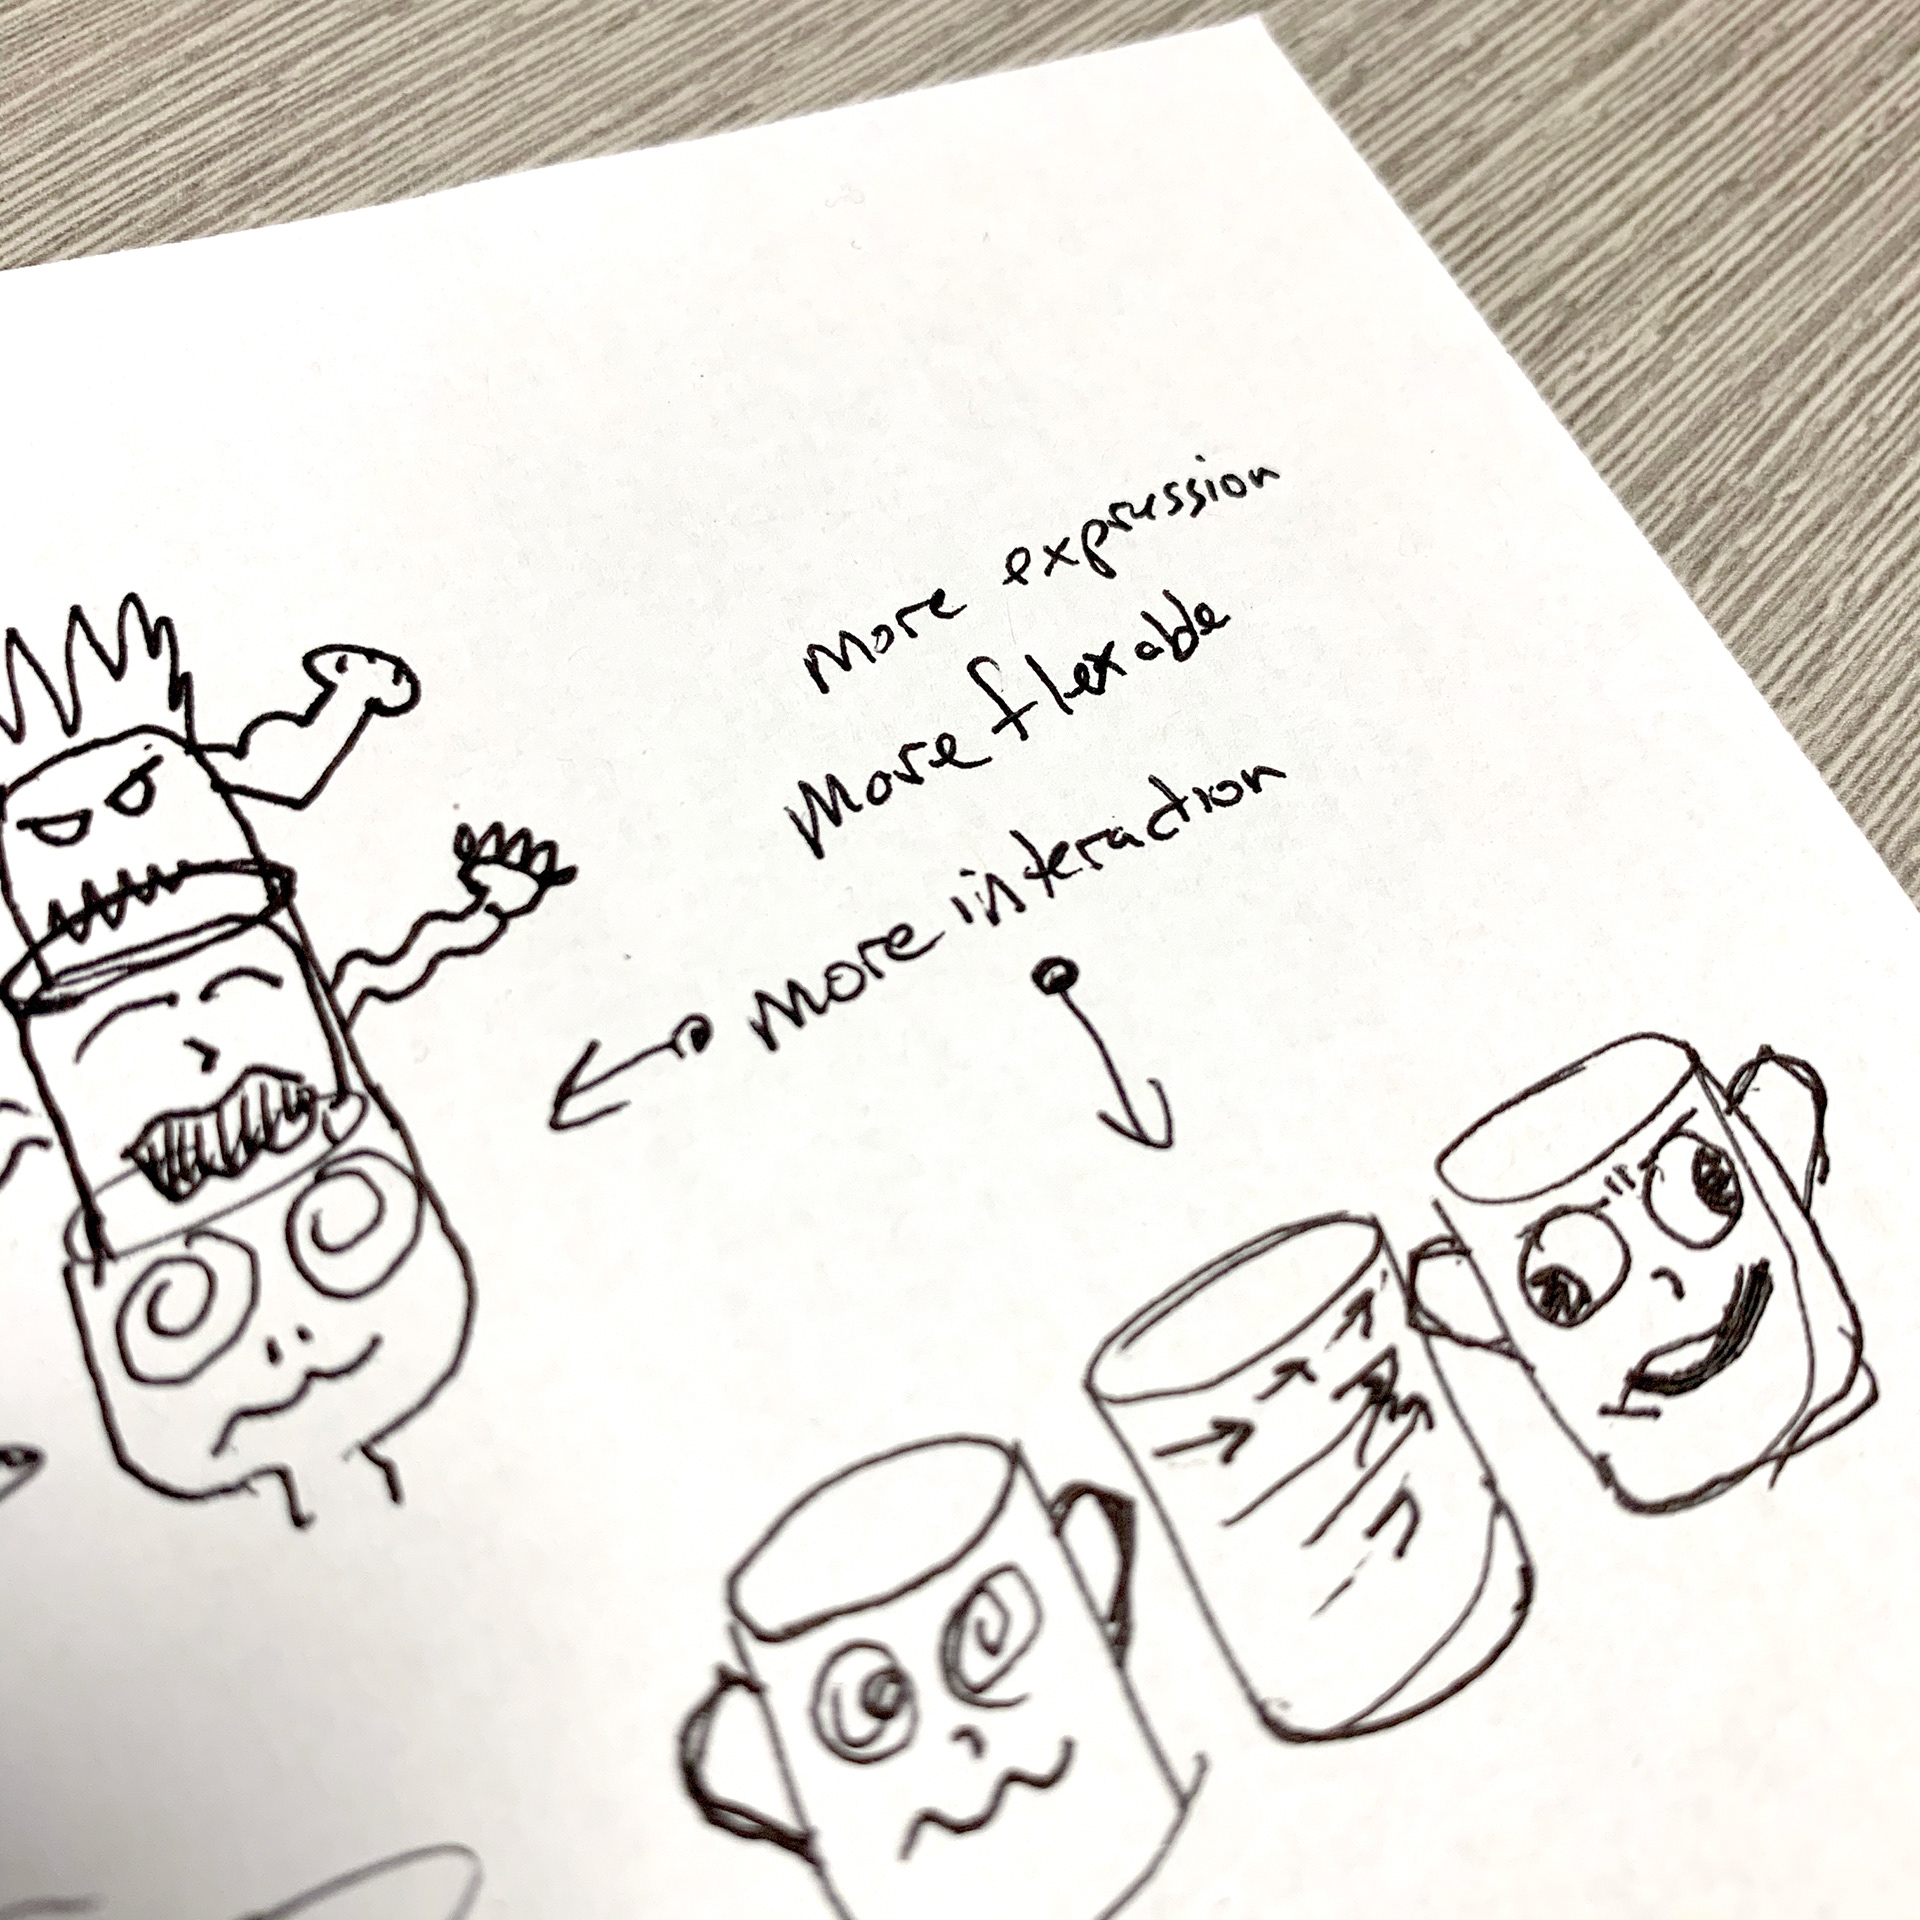 More expression
More flexable
More interaction